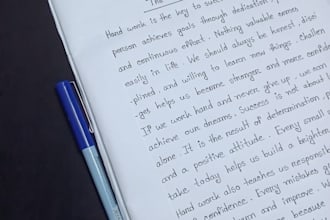 The
Hard work is the key to succ
person achieves goals through dedication
and continuous effort. Nothing valuable comes
easily in life. We should always be honest, disci
-plined, and willing to learn new things. Challen
-ges help us become stronger and more confid
If we work hard and never give up, we can
achieve our dreams. Success is not about
alone. It is the result of determination, p
and a positive attitude. Every small
take today helps us build a brighte
Hard work also teaches us responsib
confidence. Every mistake g
and improve. W
because